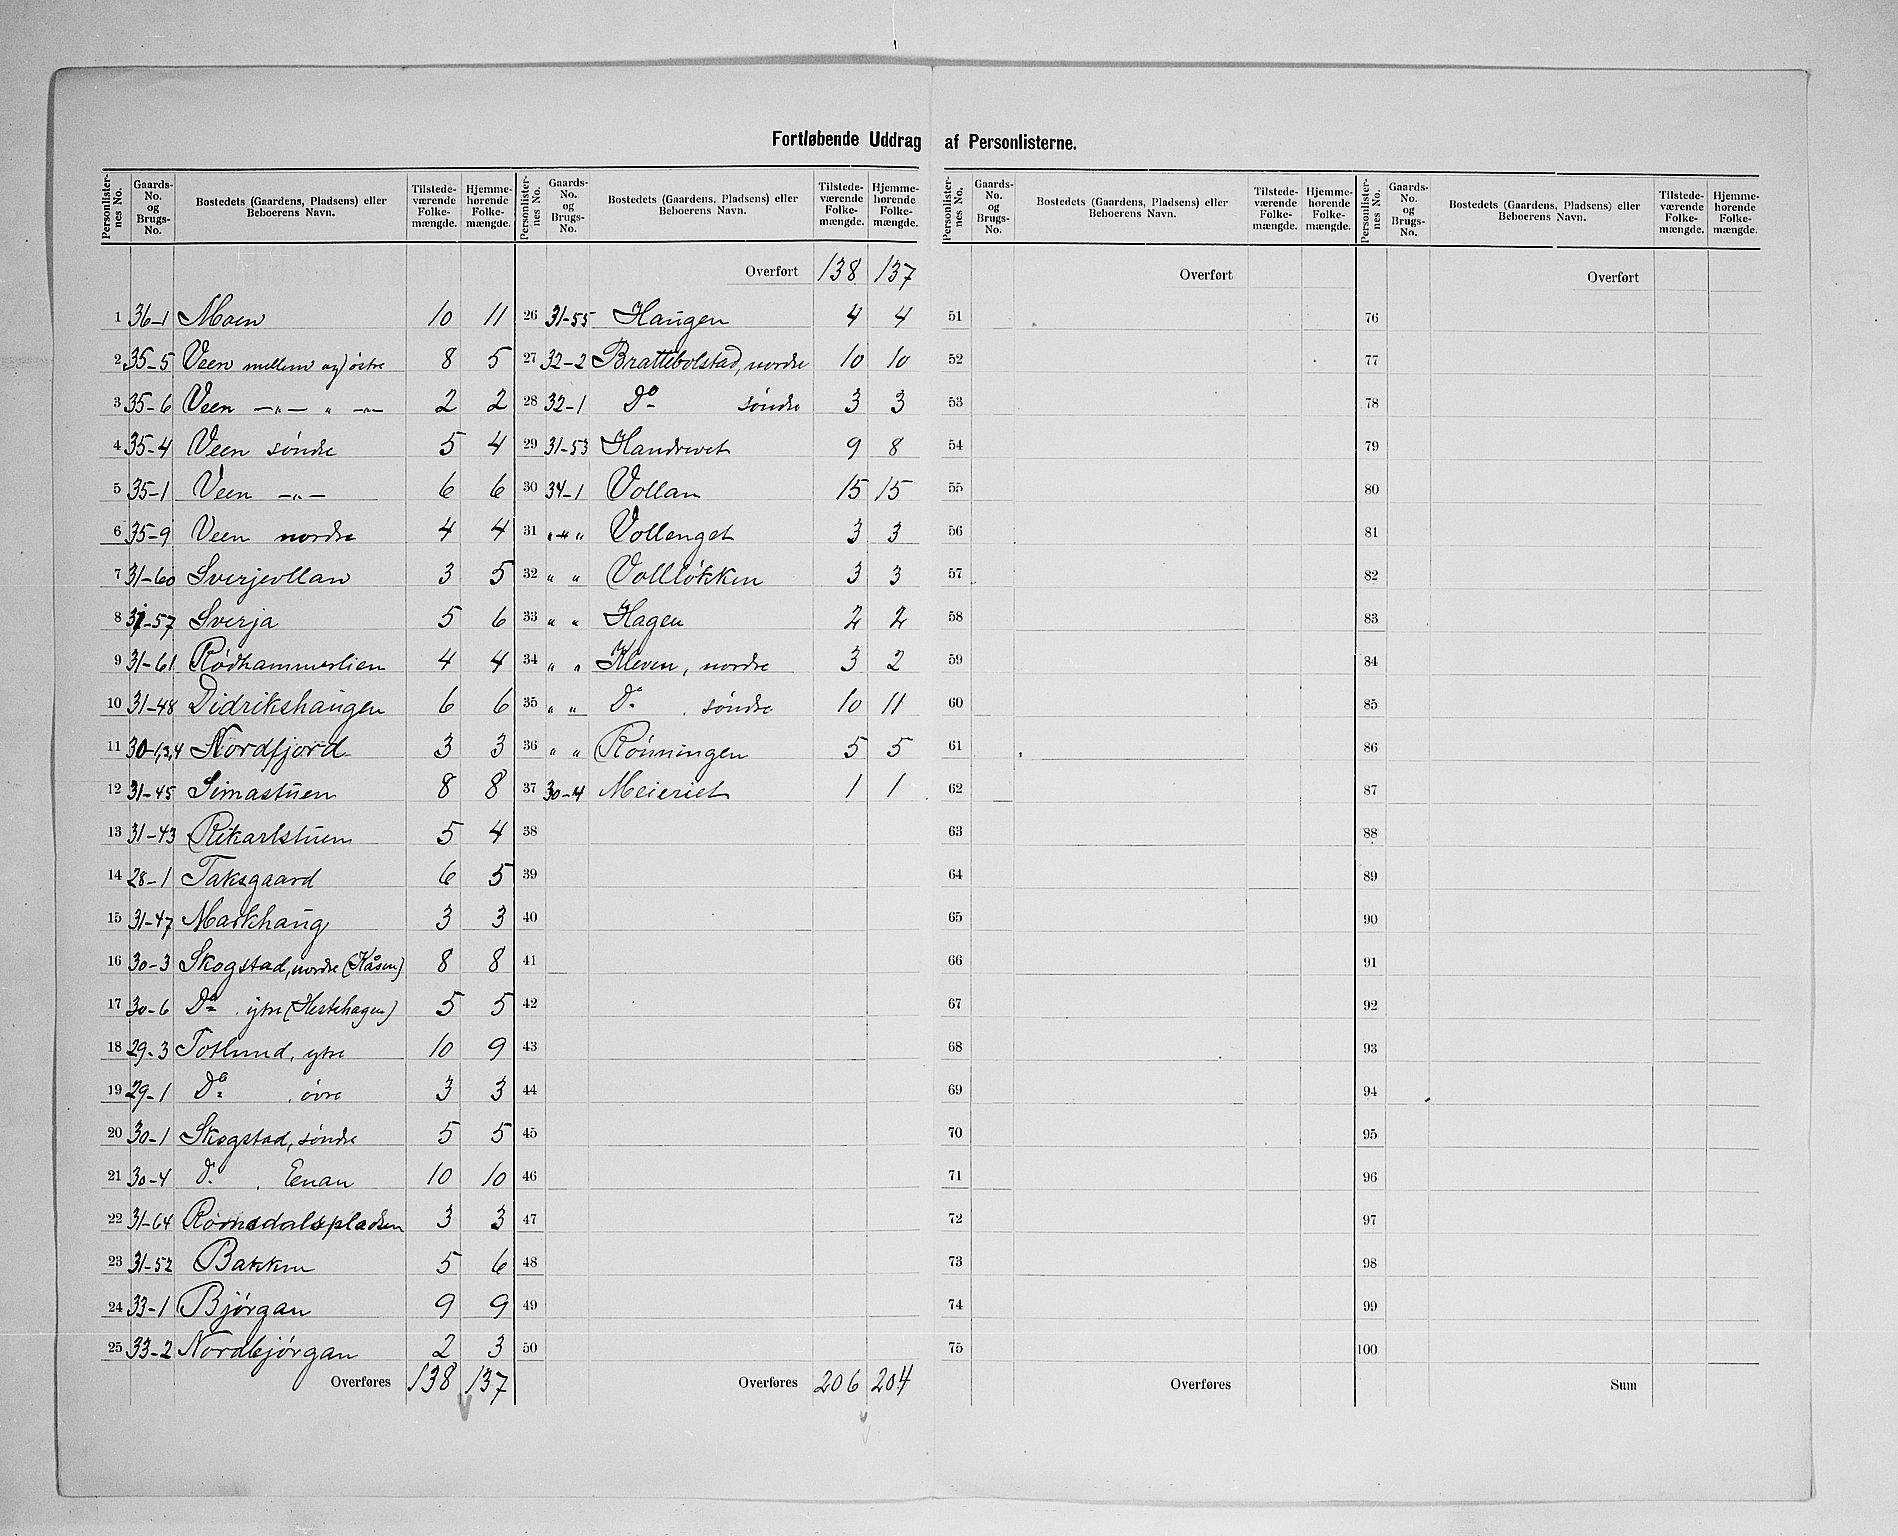 Fortløbende Uddrag af Personlisternes.
Personlisternes No. Gaards-No. og Brugs-No. Bostedets (Gaardens, Pladsens) eller Beboerens Navn. Tilstedeværende Folkemængde. Hjemmehørende Folkemængde.
1 36-1 Moen 10 11
2 35-5 Veen mellem og østre 8 5
3 35-6 Veen -"- " -"- 2 2
4 35-4 Veen søndre 5 4
5 35-1 Veen -"- 6 6
6 35-9 Veen nordre 4 4
7 31-60 Sverjevollan 3 5
8 31-57 Sverja 5 6
9 31-61 Rødhammerlien 4 4
10 31-48 Didrikshaugen 6 6
11 30-1,2,4 Nordfjord 3 3
12 31-45 Simastuen 8 8
13 31-43 Rikarlstuen 5 4
14 28-1 Taksgaard 6 5
15 31-47 Markhaug 3 3
16 30-3 Skogstad, nordre (Kåsen) 8 8
17 30-6 Do ytre (Hestehagen) 5 5
18 29-3 Totlund, ytre 10 9
19 29-1 Do , øvre 3 3
20 30-1 Skogstad, søndre 5 5
21 30-4 Do , Enan 10 10
22 31-64 3 3
23 31-52 Bakken 5 6
24 33-1 Bjørgan 9 9
25 33-2 Nordbjørgan 2 3
Overføres 138 137
Personlisternes No. Gaards-No. og Brugs-No. Bostedets (Gaardens, Pladsens) eller Beboerens Navn. Tilstedeværende Folkemængde. Hjemmehørende Folkemængde.
Overført 138 137
26 31-55 Haugen 4 4
27 32-2 Brattebolstad, nordre 10 10
28 32-1 Do søndre 3 3
29 31-53 Handrevet 9 8
30 34-1 Vollan 15 15
31 " " Vollenget 3 3
32 " " Volløkken 3 3
33 " " Hagen 2 2
34 " " Kleven, nordre 3 2
35 " " Do , søndre 10 11
36 " " Rønningen 5 5
37 30-4 Meieriet 1 1
38
39
40
41
42
43
44
45
46
47
48
49
50
Overføres 206 204
Personlisternes No. Gaards-No. og Brugs-No. Bostedets (Gaardens, Pladsens) eller Beboerens Navn. Tilstedeværende Folkemængde. Hjemmehørende Folkemængde.
Overført
51
52
53
54
55
56
57
58
59
60
61
62
63
64
65
66
67
68
69
70
71
72
73
74
75
Overføres
Personlisternes No. Gaards-No. og Brugs-No. Bostedets (Gaardens, Pladsens) eller Beboerens Navn. Tilstedeværende Folkemængde. Hjemmehørende Folkemængde.
Overført
76
77
78
79
80
81
82
83
84
85
86
87
88
89
90
91
92
93
94
95
96
97
98
99
100
Sum